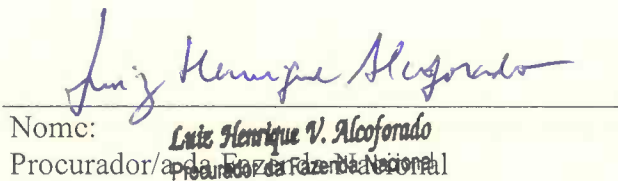 Luiz Henrique Alcoforado
Nome: Luiz Henrique V. Alcoforado
Procurador/a da Fazenda Nacional
Procurador da Fazenda Nacional